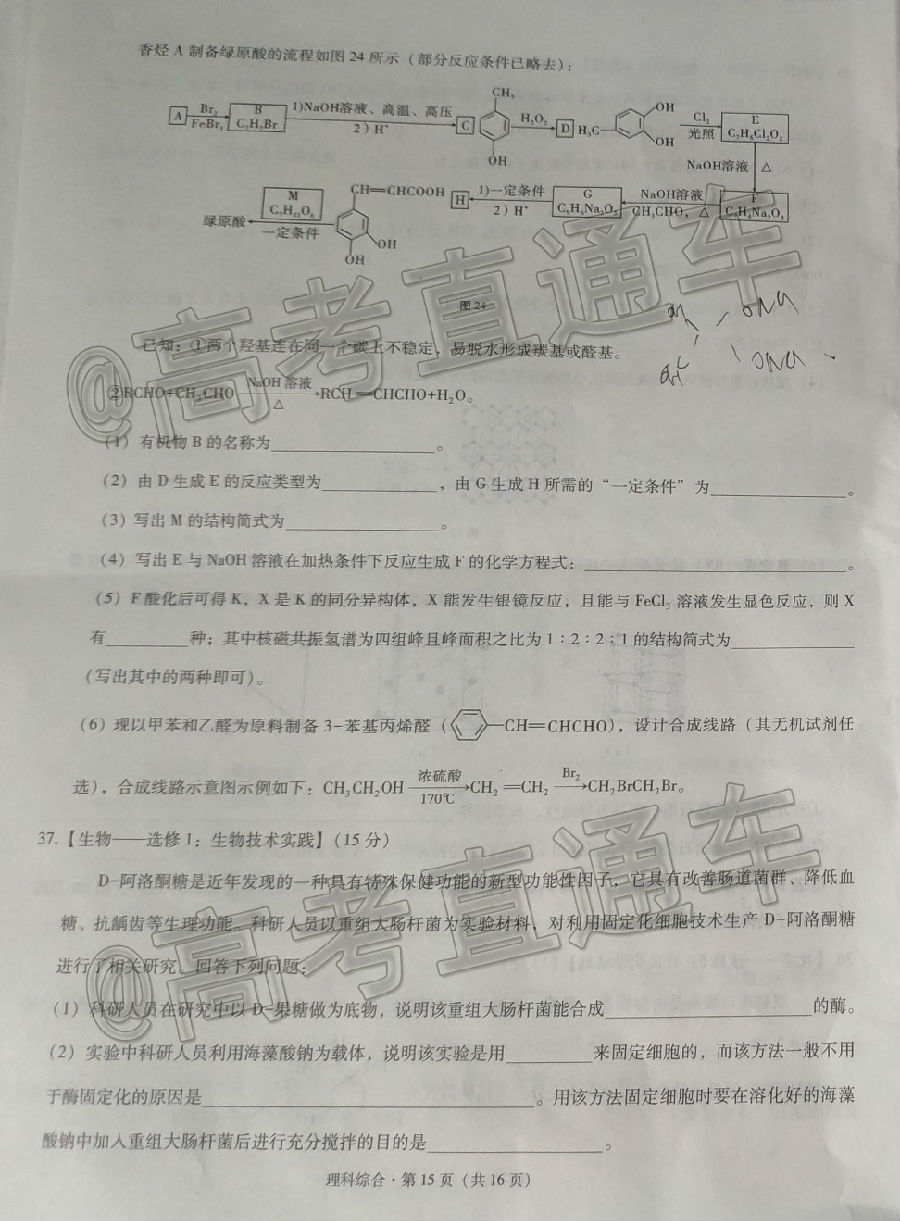 香烃 A 制备绿原酸的流程如图 24 所示（部分反应条件已略去）：
A Br₂ FeBr₃ B C₇H₇Br 1)NaOH溶液、高温、高压 2) H⁺ C CH₃ OH H₂O₂ D H₃C OH OH Cl₂ 光照 E C₇H₆Cl₂O₂
NaOH溶液 △
绿原酸 M C₇H₁₂O₆ 一定条件 CH=CHCOOH OH OH H 1)一定条件 2) H⁺ G NaOH溶液 CH₃CHO，△ F
图 24
已知：①两个羟基连在同一个碳上不稳定，易脱水形成羰基或醛基。
②RCHO+CH₃CHO NaOH溶液 △ RCH=CHCHO+H₂O。
（1）有机物 B 的名称为　　　　。
（2）由 D 生成 E 的反应类型为　　　　，由 G 生成 H 所需的“一定条件”为　　　　。
（3）写出 M 的结构简式为　　　　。
（4）写出 E 与 NaOH 溶液在加热条件下反应生成 F 的化学方程式：　　　　。
（5）F 酸化后可得 K，X 是 K 的同分异构体，X 能发生银镜反应，且能与 FeCl₃ 溶液发生显色反应，则 X
有　　　　种；其中核磁共振氢谱为四组峰且峰面积之比为 1：2：2：1 的结构简式为　　　　
（写出其中的两种即可）。
（6）现以甲苯和乙醛为原料制备 3-苯基丙烯醛（ CH=CHCHO），设计合成线路（其无机试剂任
选），合成线路示意图示例如下：CH₃CH₂OH 浓硫酸 170℃ CH₂=CH₂ Br₂ CH₂BrCH₂Br。
37.【生物——选修 1：生物技术实践】（15 分）
D-阿洛酮糖是近年发现的一种具有特殊保健功能的新型功能性因子，它具有改善肠道菌群、降低血
糖、抗龋齿等生理功能。科研人员以重组大肠杆菌为实验材料，对利用固定化细胞技术生产 D-阿洛酮糖
进行了相关研究。回答下列问题：
（1）科研人员在研究中以 D-果糖做为底物，说明该重组大肠杆菌能合成　　　　的酶。
（2）实验中科研人员利用海藻酸钠为载体，说明该实验是用　　　　来固定细胞的，而该方法一般不用
于酶固定化的原因是　　　　。用该方法固定细胞时要在溶化好的海藻
酸钠中加入重组大肠杆菌后进行充分搅拌的目的是　　　　。
理科综合·第 15 页（共 16 页）
@高考直通车
@高考直通车